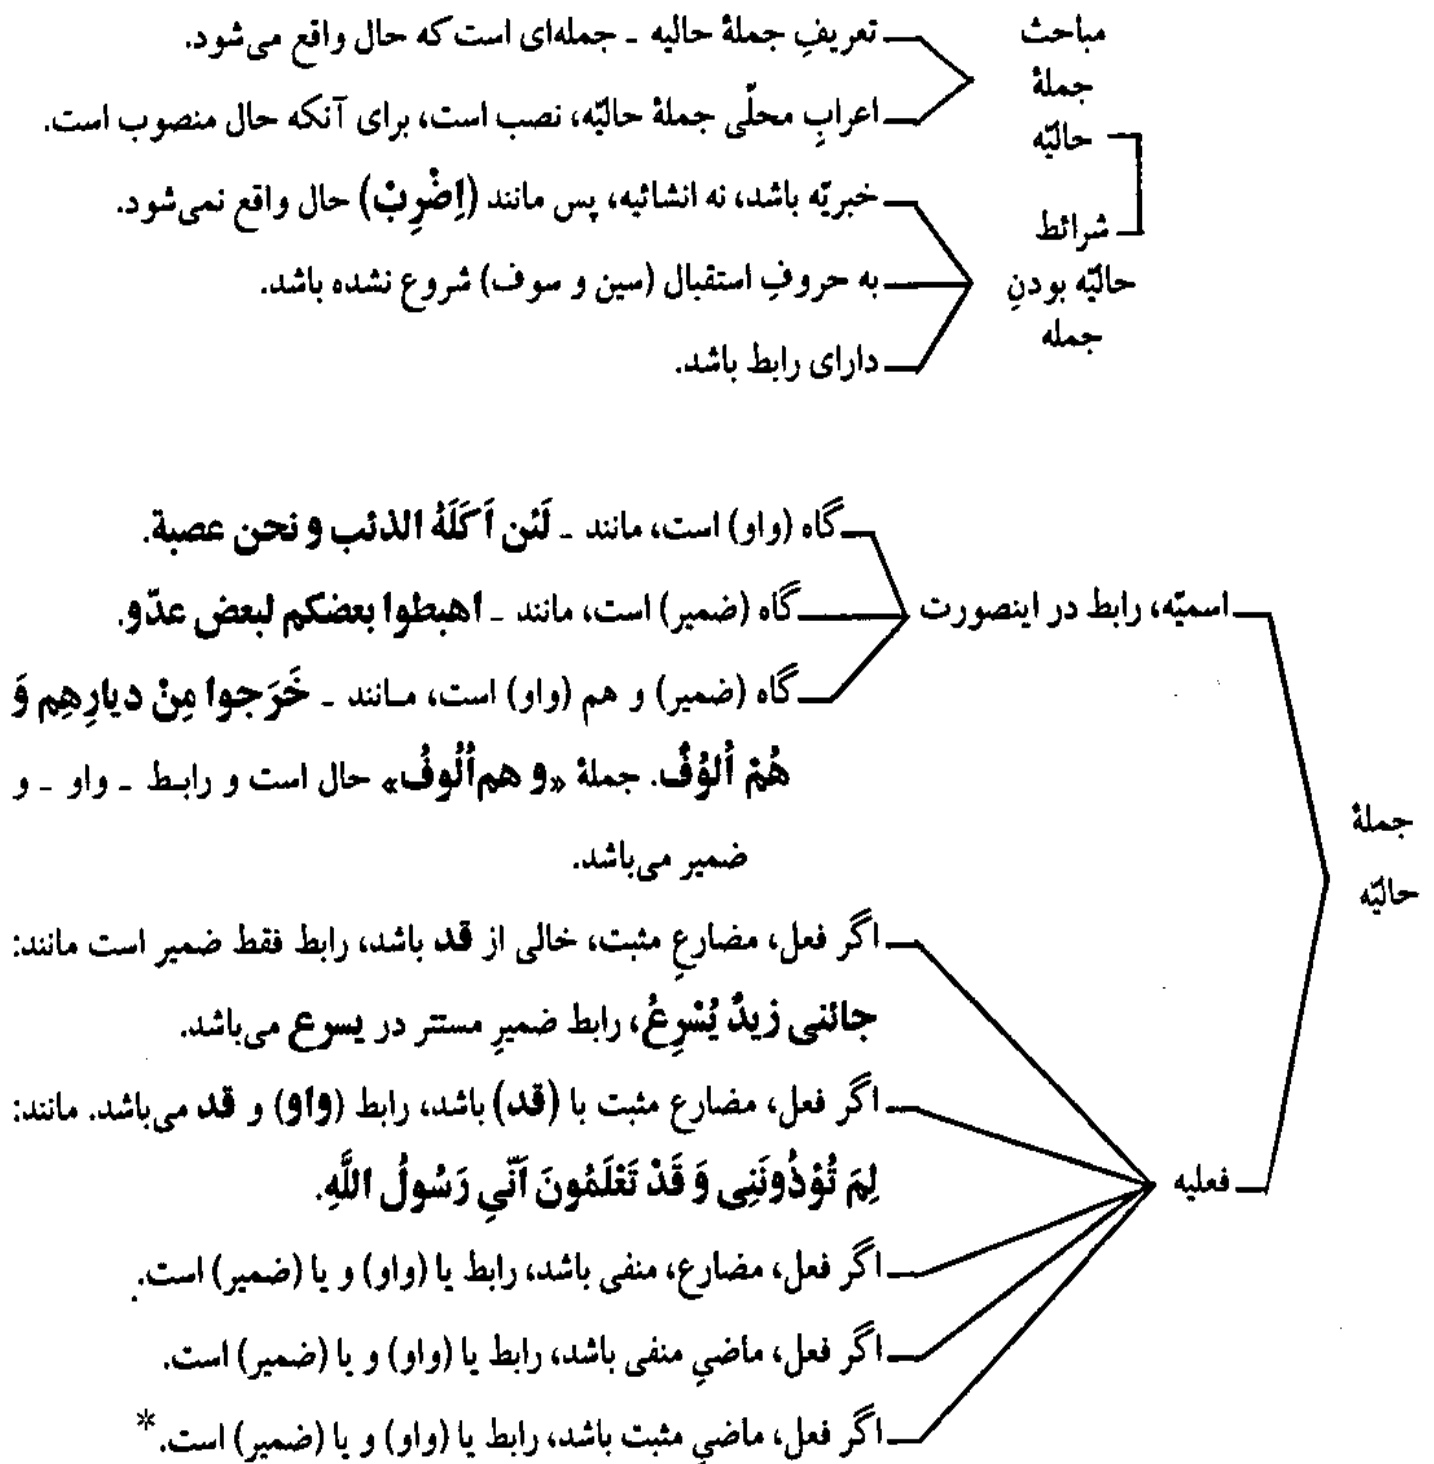 مباحث
جملهٔ
حالیّه
تعریفِ جملهٔ حالیه ـ جمله‌ای است که حال واقع می‌شود.
اعرابِ محلّی جملهٔ حالیّه، نصب است، برای آنکه حال منصوب است.
شرائط
حالیّه بودنِ
جمله
خبریّه باشد، نه انشائیه، پس مانند (اِضْرِبْ) حال واقع نمی‌شود.
به حروفِ استقبال (سین و سوف) شروع نشده باشد.
دارای رابط باشد.
جملهٔ
حالیّه
اسمیّه، رابط در اینصورت
گاه (واو) است، مانند ـ لَئن اَکَلَهُ الذئب و نحن عصبة.
گاه (ضمیر) است، مانند ـ اهبطوا بعضکم لبعض عدّو.
گاه (ضمیر) و هم (واو) است، مـانند ـ خَرَجوا مِنْ دیارِهِم وَ
هُمْ اُلوُفٌ. جملهٔ «و هم‌اُلُوفُ» حال است و رابـط ـ واو ـ و
ضمیر می‌باشد.
فعلیه
اگر فعل، مضارعِ مثبت، خالی از قد باشد، رابط فقط ضمیر است مانند:
جائنی زیدٌ یُسْرِعُ، رابط ضمیرِ مستتر در یسرع می‌باشد.
اگر فعل، مضارع مثبت با (قد) باشد، رابط (واو) و قد می‌باشد. مانند:
لِمَ تُؤذُونَنِی وَ قَدْ تَعْلَمُونَ اَنّیِ رَسُولُ اللَّهِ.
اگر فعل، مضارع، منفی باشد، رابط یا (واو) و یا (ضمیر) است.
اگر فعل، ماضیِ منفی باشد، رابط یا (واو) و یا (ضمیر) است.
اگر فعل، ماضیِ مثبت باشد، رابط یا (واو) و یا (ضمیر) است.*